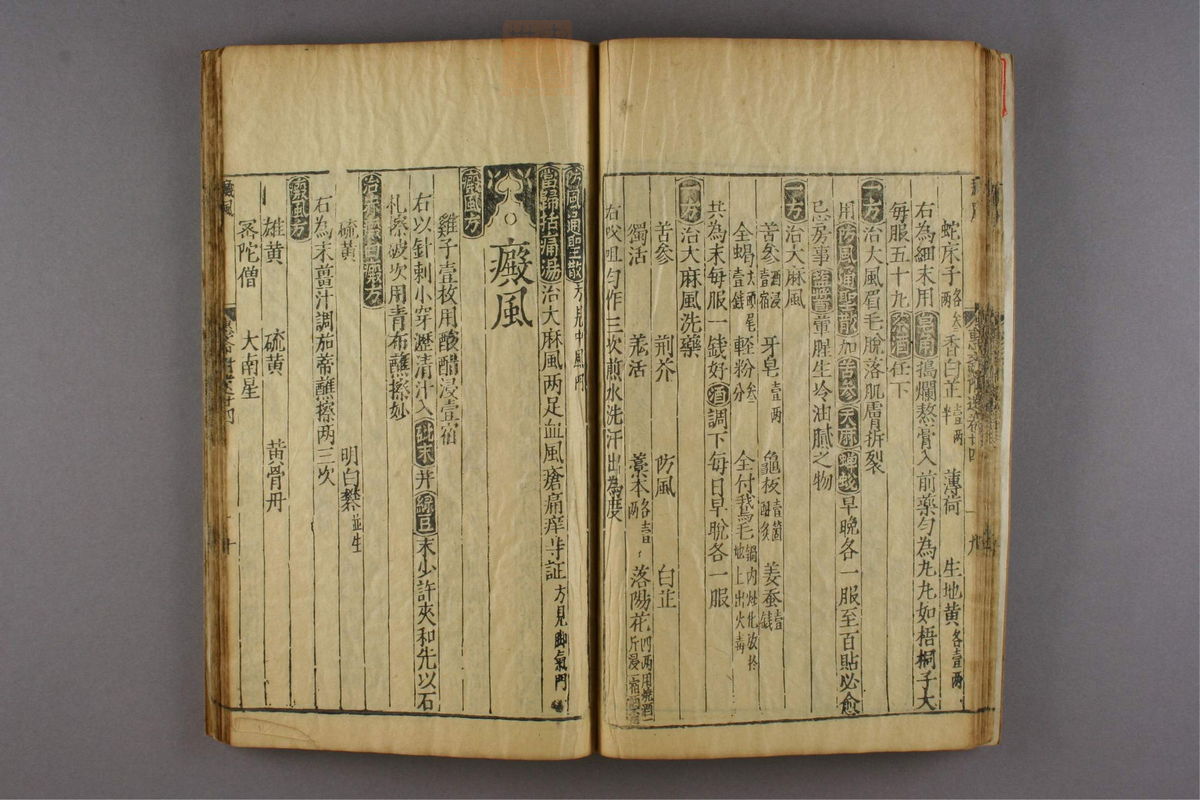 蛇床子各叁两 香白芷壹两半 薄荷 生地黄各壹两
右為細末用皂角搗爛熬膏入前藥匀為九九如梧桐子大
毎服五十九茶酒任下
一方治大風眉毛脫落肌膚拆裂
用防風通聖散加苦參天麻蟬蛻早晚各一服至百貼必愈
忌房事鹽醬葷腥生冷油膩之物
一方治大麻風
苦參酒浸壹宿 牙皂壹两 龜板壹箇酥炙 姜蚕壹錢
全蝎去頭尾壹錢 輕粉叁分 全付鵞毛鍋内炒化放於地上出火毒
共為末每服一錢好酒調下每日早晚各一服
一方治大麻風洗藥
苦參 荊芥 防風 白芷
獨活 羌活 藁本各壹两 落陽花四两用燒酒二斤浸一宿
右㕮咀匀作三次煎水洗汗出為度
防風通聖散方見中風門
當歸拈痛湯治大麻風两足血風瘡痛痒等証方見脚氣門
癜風
癜風方
雞子壹枚用酸醋浸壹宿
右以針刺小穿瀝清汁入砒末并綠豆末少許夾和先以石
札擦破次用青布蘸擦妙
治赤白癜方
硫黄 明白礬並生
右為末薑汁調茄蒂蘸擦两三次
癜風方
雄黄 硫黄 黄骨丹
宻陀僧 大南星